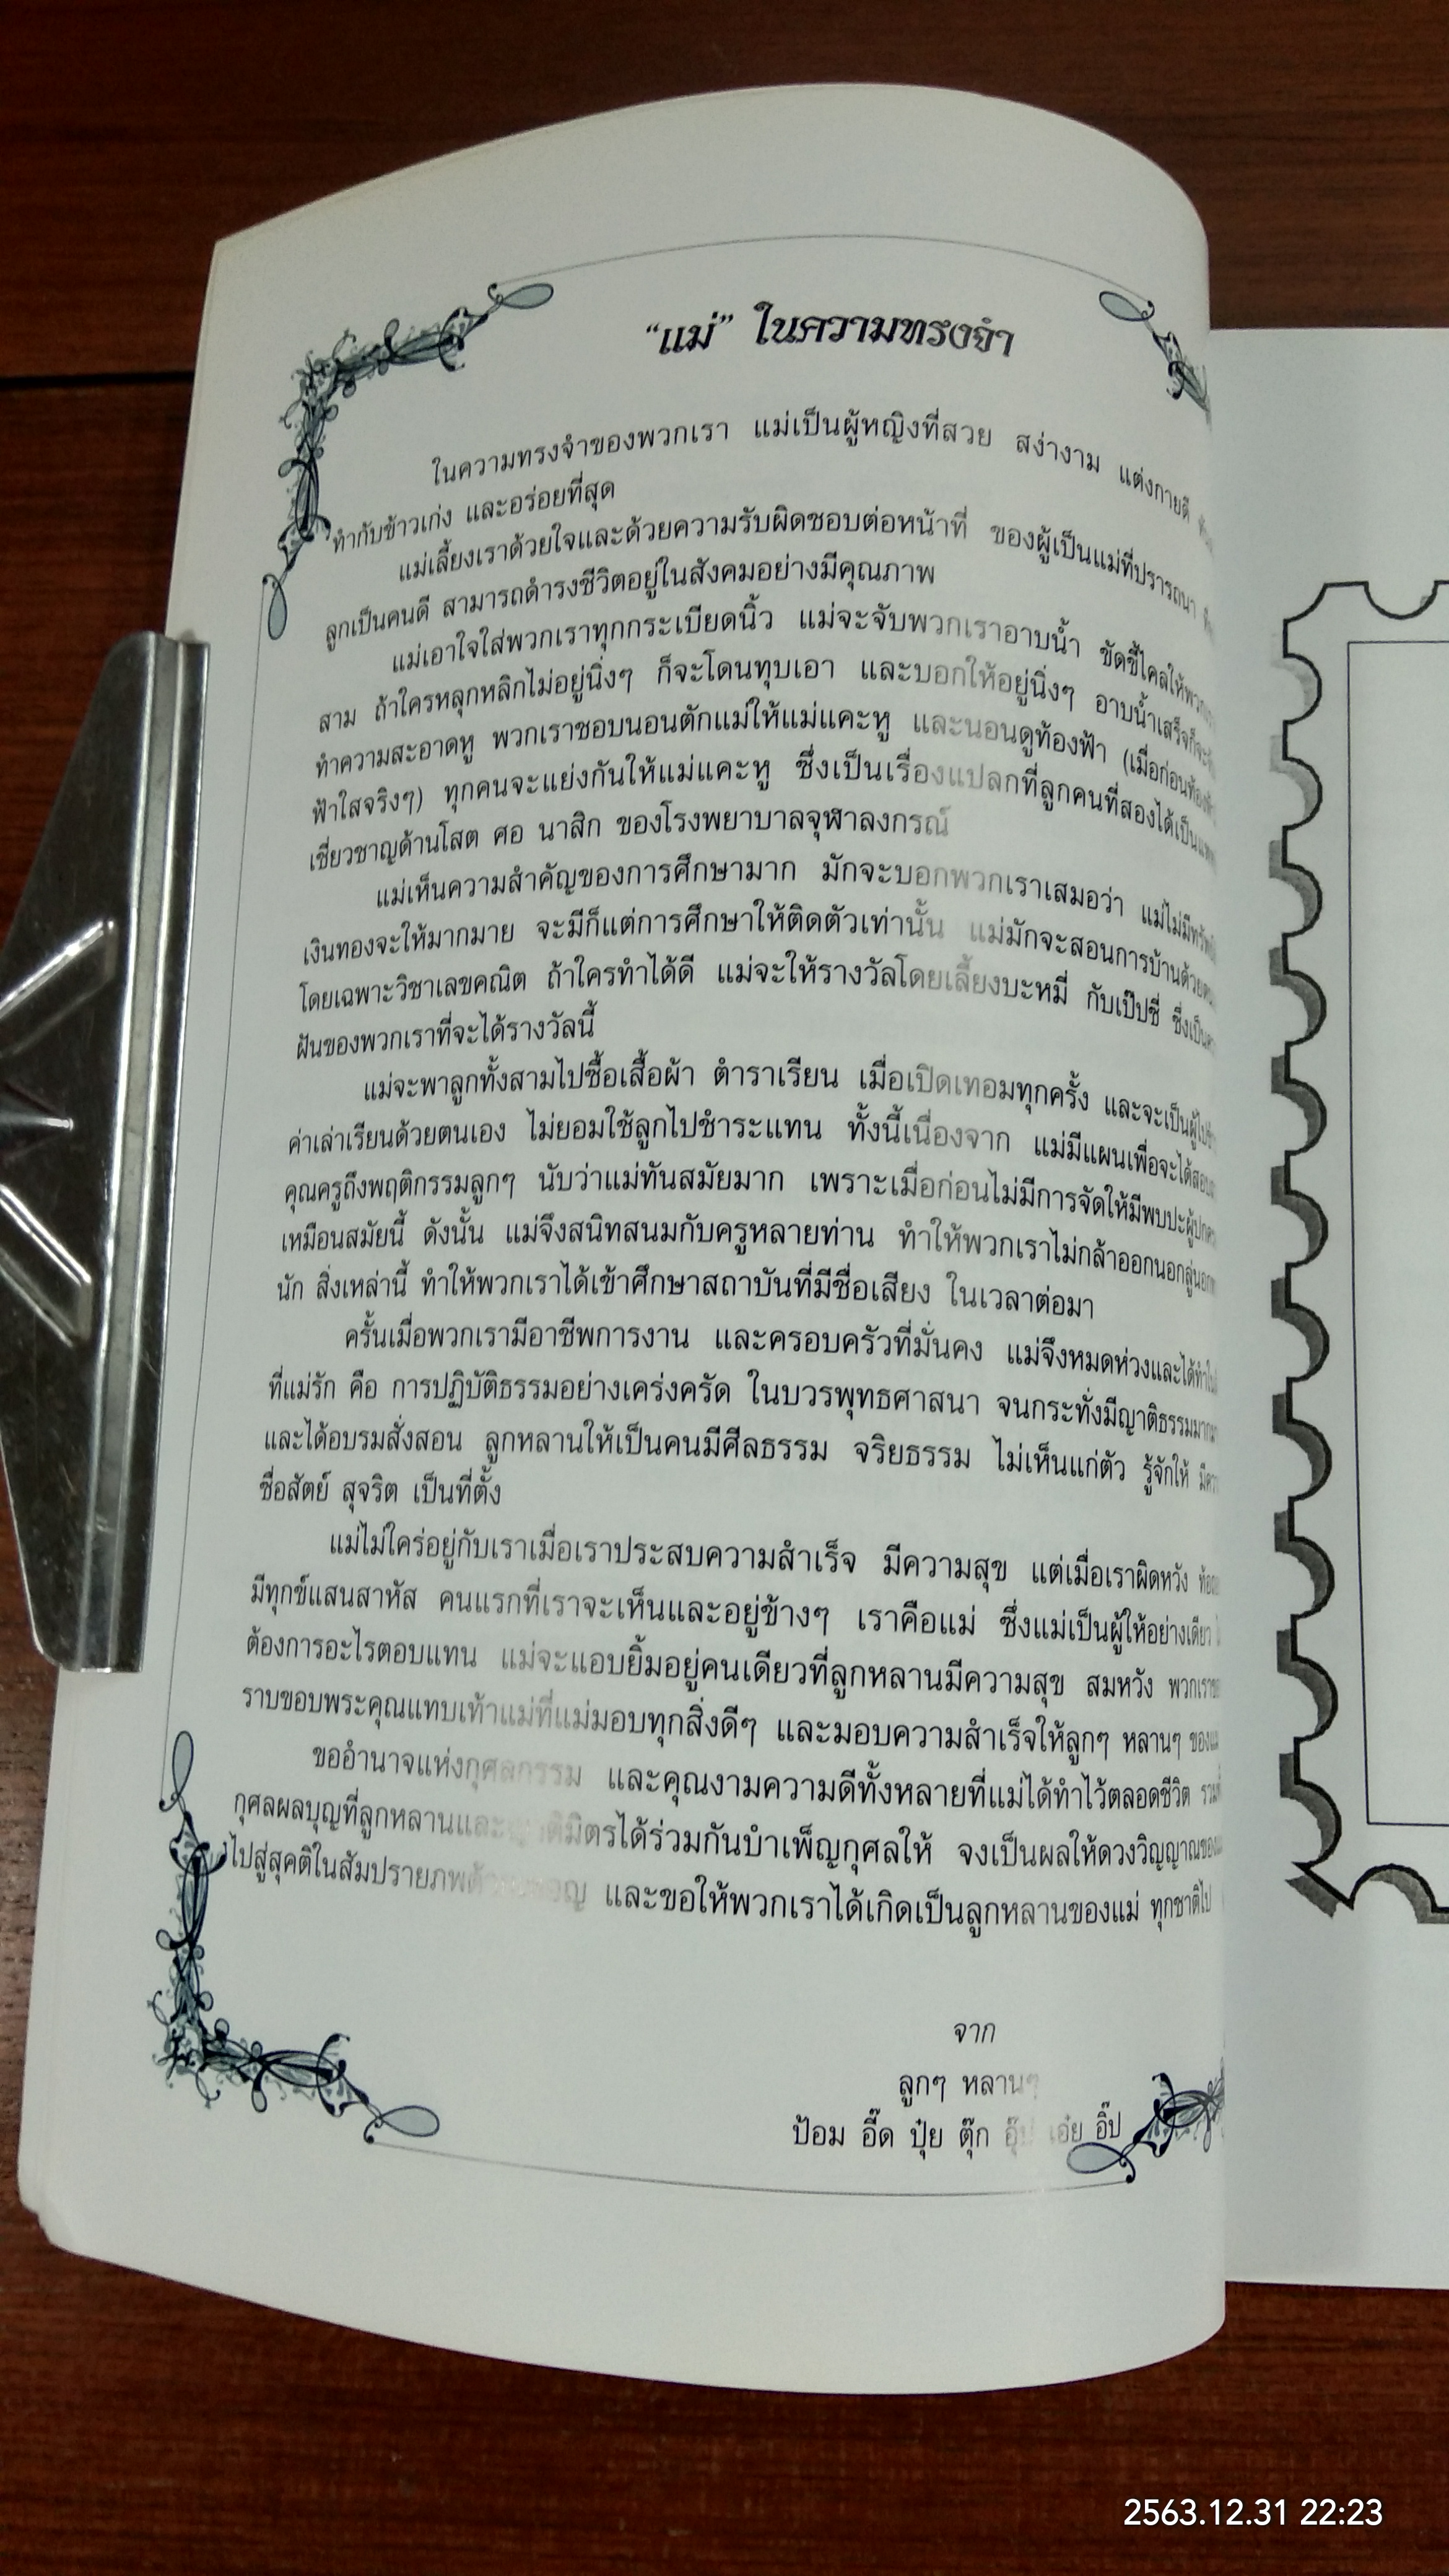 “แม่” ในความทรงจำ
ในความทรงจำของพวกเรา แม่เป็นผู้หญิงที่สวย สง่างาม แต่งกายดี
ทำกับข้าวเก่ง และอร่อยที่สุด
แม่เลี้ยงเราด้วยใจและด้วยความรับผิดชอบต่อหน้าที่ ของผู้เป็นแม่ที่ปรารถนา
ลูกเป็นคนดี สามารถดำรงชีวิตอยู่ในสังคมอย่างมีคุณภาพ
แม่เอาใจใส่พวกเราทุกกระเบียดนิ้ว แม่จะจับพวกเราอาบน้ำ ขัดขี้ไคลให้
สาม ถ้าใครหลุกหลิกไม่อยู่นิ่งๆ ก็จะโดนทุบเอา และบอกให้อยู่นิ่งๆ อาบน้ำเสร็จก็จะ
ทำความสะอาดหู พวกเราชอบนอนตักแม่ให้แม่แคะหู และนอนดูท้องฟ้า (เมื่อก่อน
ฟ้าใสจริงๆ) ทุกคนจะแย่งกันให้แม่แคะหู ซึ่งเป็นเรื่องแปลกที่ลูกคนที่สองได้เป็น
เชี่ยวชาญด้านโสต ศอ นาสิก ของโรงพยาบาลจุฬาลงกรณ์
แม่เห็นความสำคัญของการศึกษามาก มักจะบอกพวกเราเสมอว่า แม่ไม่มี
เงินทองจะให้มากมาย จะมีก็แต่การศึกษาให้ติดตัวเท่านั้น แม่มักจะสอนการบ้านด้วย
โดยเฉพาะวิชาเลขคณิต ถ้าใครทำได้ดี แม่จะให้รางวัลโดยเลี้ยงบะหมี่ กับเป๊ปซี่ ซึ่งเป็น
ฝันของพวกเราที่จะได้รางวัลนี้
แม่จะพาลูกทั้งสามไปซื้อเสื้อผ้า ตำราเรียน เมื่อเปิดเทอมทุกครั้ง และจะเป็นผู้
ค่าเล่าเรียนด้วยตนเอง ไม่ยอมใช้ลูกไปชำระแทน ทั้งนี้เนื่องจาก แม่มีแผนเพื่อจะได้
คุณครูถึงพฤติกรรมลูกๆ นับว่าแม่ทันสมัยมาก เพราะเมื่อก่อนไม่มีการจัดให้มีพบปะ
เหมือนสมัยนี้ ดังนั้น แม่จึงสนิทสนมกับครูหลายท่าน ทำให้พวกเราไม่กล้าออกนอกลู่
นัก สิ่งเหล่านี้ ทำให้พวกเราได้เข้าศึกษาสถาบันที่มีชื่อเสียง ในเวลาต่อมา
ครั้นเมื่อพวกเรามีอาชีพการงาน และครอบครัวที่มั่นคง แม่จึงหมดห่วงและได้ทำ
ที่แม่รัก คือ การปฏิบัติธรรมอย่างเคร่งครัด ในบวรพุทธศาสนา จนกระทั่งมีญาติธรรม
และได้อบรมสั่งสอน ลูกหลานให้เป็นคนมีศีลธรรม จริยธรรม ไม่เห็นแก่ตัว รู้จักให้
ซื่อสัตย์ สุจริต เป็นที่ตั้ง
แม่ไม่ใคร่อยู่กับเราเมื่อเราประสบความสำเร็จ มีความสุข แต่เมื่อเราผิดหวัง
มีทุกข์แสนสาหัส คนแรกที่เราจะเห็นและอยู่ข้างๆ เราคือแม่ ซึ่งแม่เป็นผู้ให้อย่างเดียว
ต้องการอะไรตอบแทน แม่จะแอบยิ้มอยู่คนเดียวที่ลูกหลานมีความสุข สมหวัง
ราบขอบพระคุณแทบเท้าแม่ที่แม่มอบทุกสิ่งดีๆ และมอบความสำเร็จให้ลูกๆ หลานๆ
ขออำนาจแห่งกุศลกรรม และคุณงามความดีทั้งหลายที่แม่ได้ทำไว้ตลอดชีวิต
กุศลผลบุญที่ลูกหลานและญาติมิตรได้ร่วมกันบำเพ็ญกุศลให้ จงเป็นผลให้ดวงวิญญาณ
ไปสู่สุคติในสัมปรายภพ และขอให้พวกเราได้เกิดเป็นลูกหลานของแม่ ทุกชาติไป
จาก
ลูกๆ หลานๆ
ป้อม อี๊ด ปุ๋ย ตุ๊ก เอ๋ย อิ๊ป
2563.12.31 22:23